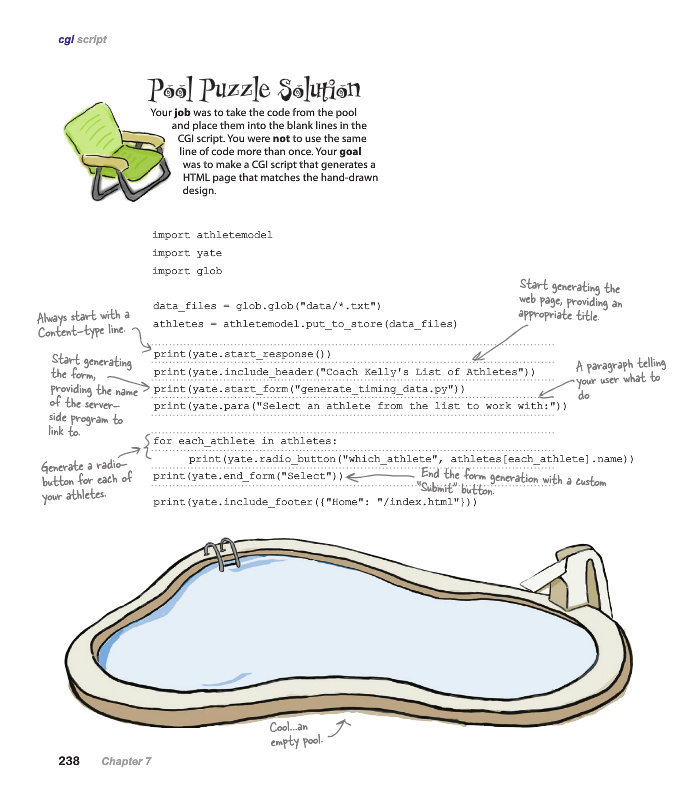 cgI script
Pool Puzzle Solution
Your job was to take the code from the pool
and place them into the blank lines in the
CGI script. You were not to use the same
line of code more than once. Your goal
was to make a CGI script that generates a
HTML page that matches the hand-drawn
design.
import athletemodel
import yate
import glob
data_files = glob.glob("data/*.txt")
athletes = athletemodel.put_to_store(data_files)
Start generating the
web page, providing an
appropriate title.
Always start with a
Content-type line.
print(yate.start_response())
print(yate.include_header("Coach Kelly's List of Athletes"))
print(yate.start_form("generate_timing_data.py"))
print(yate.para("Select an athlete from the list to work with:"))
Start generating
the form,
providing the name
of the server-
side program to
link to.
A paragraph telling
your user what to
do
for each_athlete in athletes:
print(yate.radio_button("which_athlete", athletes[each_athlete].name))
print(yate.end_form("Select"))
Generate a radio-
button for each of
your athletes.
End the form generation with a custom
"Submit" button.
print(yate.include_footer({"Home": "/index.html"}))
Cool...an
empty pool.
238 Chapter 7